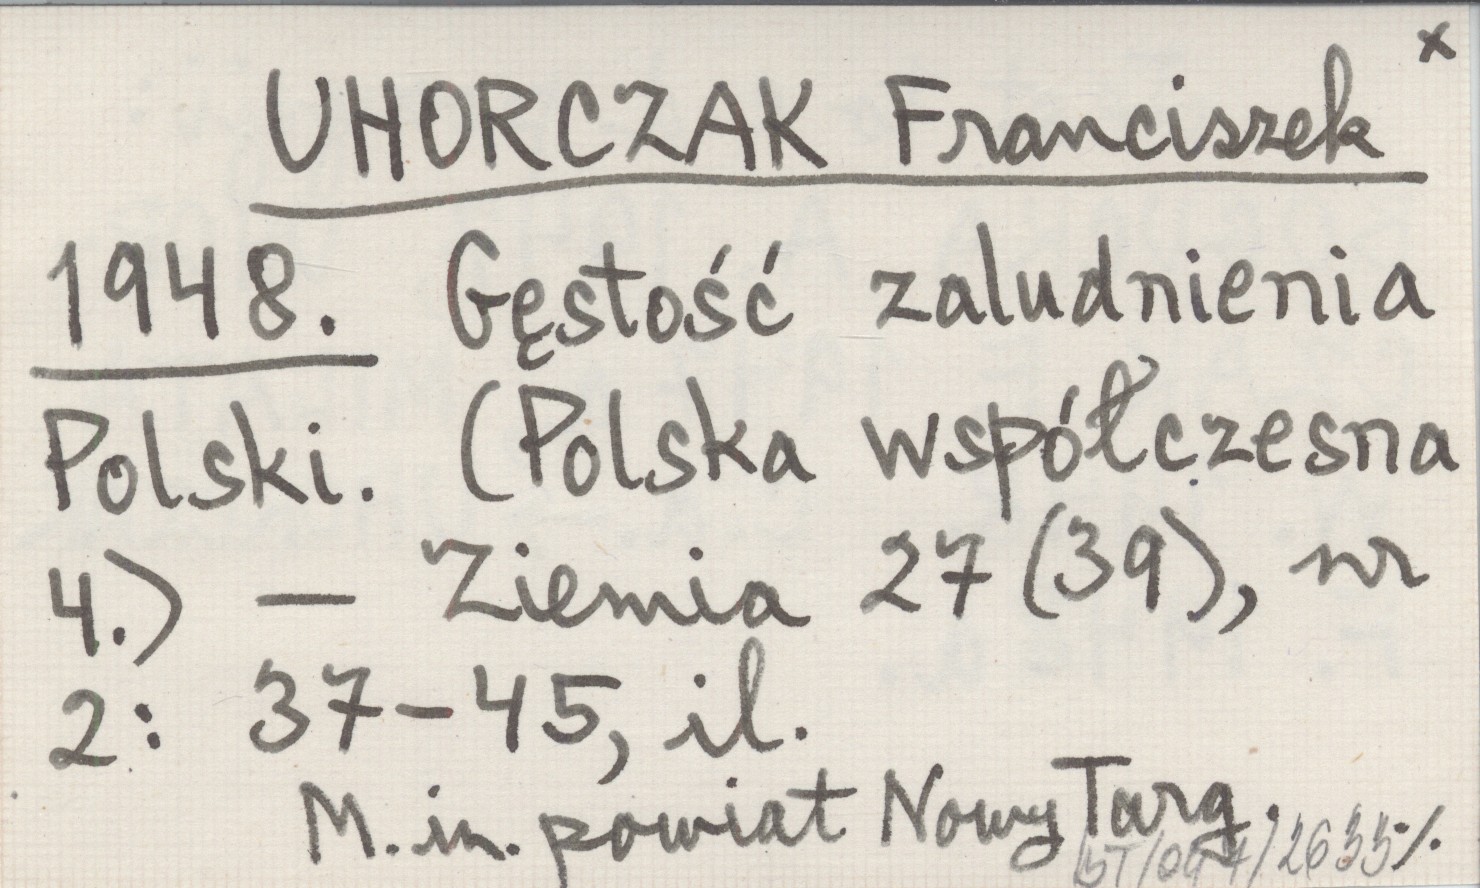 x
UHORCZAK Franciszek
1948. Gęstość zaludnienia
Polski. (Polska współczesna
4.) — Ziemia 27 (39), nr
2: 37-45, il.
M. in. powiat Nowy Targ.